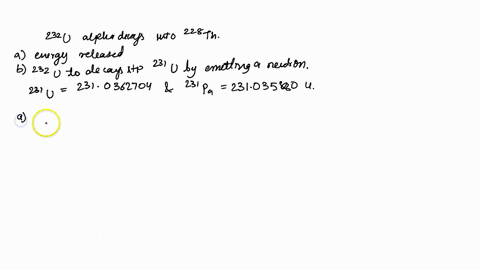 ²³²U alpha decays into ²²⁸Th.
a) energy released
b) ²³²U to decays to ²³¹U by emitting a neutron.
²³¹U = 231.0362704 & ²³¹Pa = u.
a)